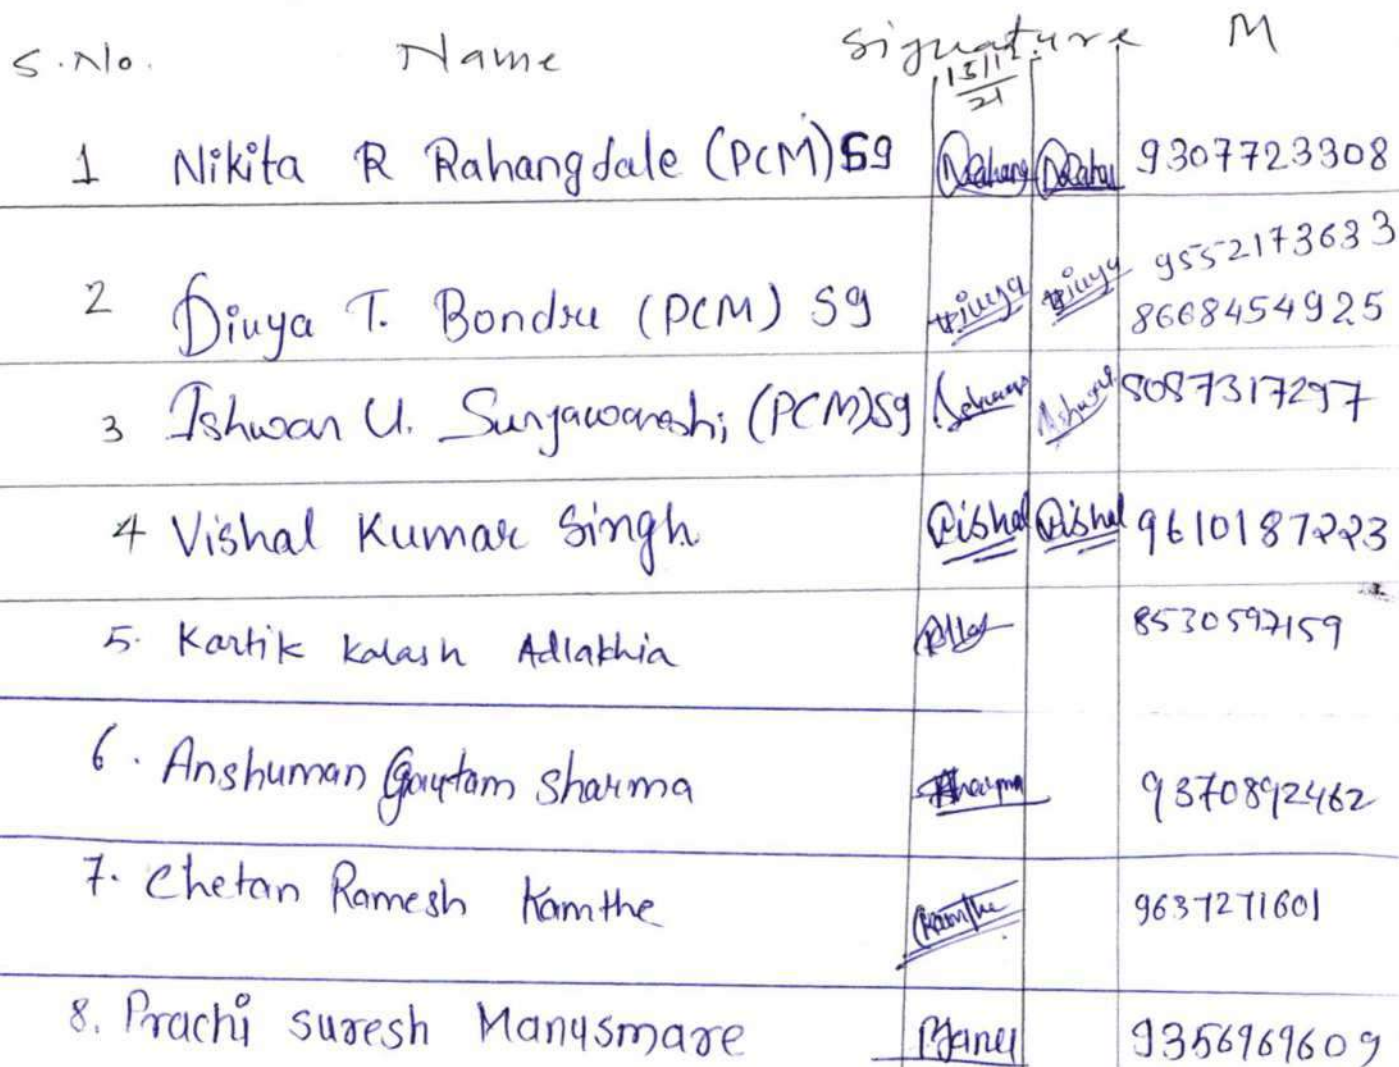 S.No. Name Signature M
15/12
21
1 Nikita R Rahangdale (PCM) Sg 9307723308
2 Divya T. Bondre (PCM) Sg Divya Divya 9552173633
8668454925
3 Ishwar U. Suryawanshi (PCM) Sg 8087317297
4 Vishal Kumar Singh Vishal Vishal 9610187223
5. Kartik Kalash Adlakhia 8530597159
6. Anshuman Gautam Sharma Sharma 9370892462
7. Chetan Ramesh Kamthe Kamthe 9637271601
8. Prachi suresh Manusmare 9356969609